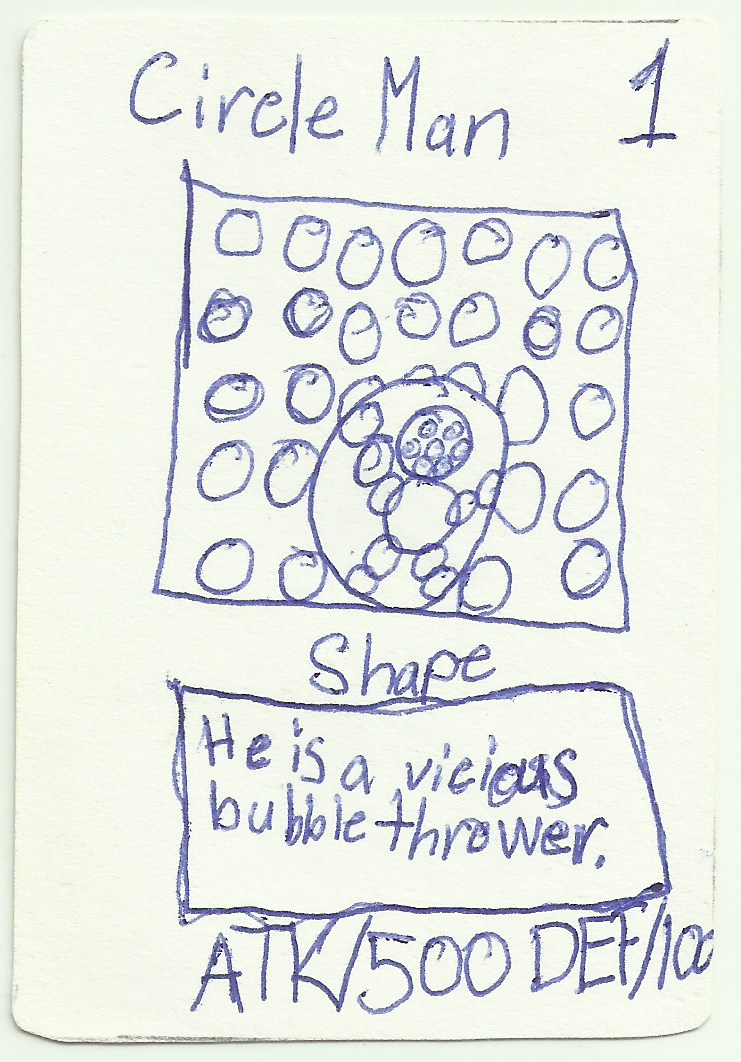 Circle Man 1
Shape
He is a vicious
bubble thrower.
ATK/500 DEF/100